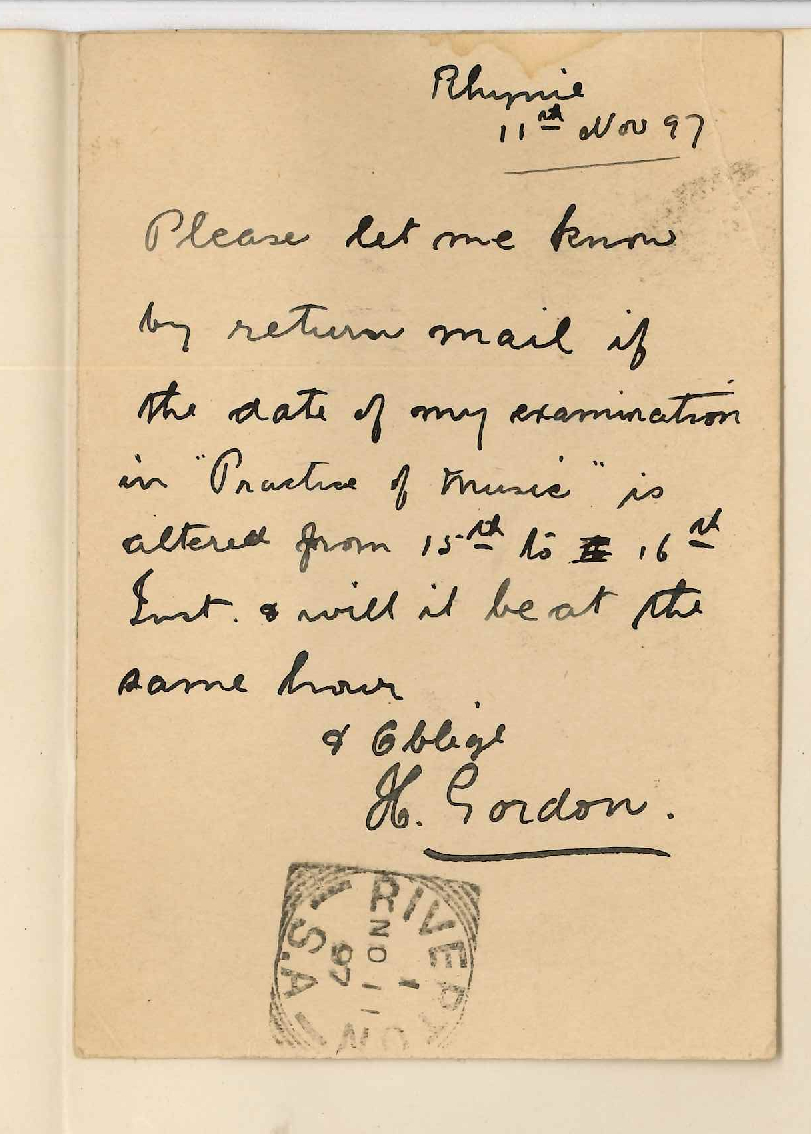 Rhynie
11th Nov 97
Please let me know
by return mail if
the date of my examination
in "Practice of Music" is
altered from 15th to 16th
Inst. & will it be at the
same hour
& Oblige
H. Gordon.
RIVERTON
S.A
NO 11
97
1